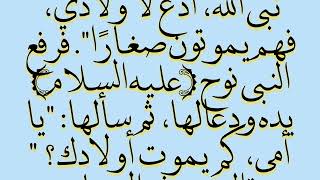 نبى الله، ادع لأولادي،
فهم يموتون صغارًا". فرفع
النبى نوح ﴿عليه السلام﴾
يده ودعا لها، ثم سألها: "يا
أمى، كم يموت أولادك؟"